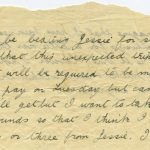 be beating Jessie for s
that this unexpected trip
will be required to be m
pay on Tuesday but can
will get but I want to take
ounds so that I think I
or three from Jessie. I